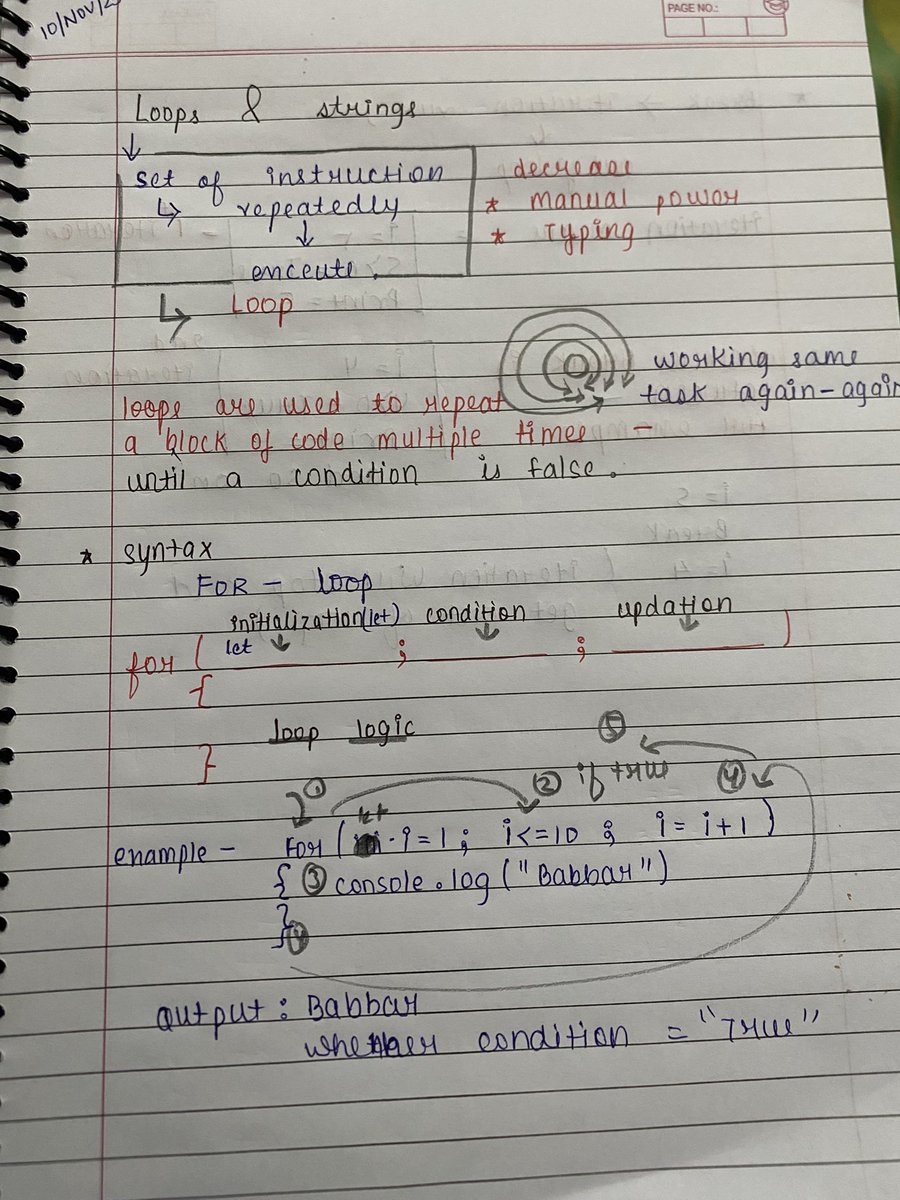 10/Nov/2
PAGE NO.:
Loops & strings
↓
set of instruction
↳ repeatedly
↓
enceute.
decrease
* manual power
* Typing
↳ Loop
working same
task again-again
loops are used to repeat
a block of code multiple times -
until a condition is false.
* syntax
FOR - loop
initialization(let) condition updation
for ( let ______ ; ______ ; ______ )
{
loop logic
}
① ② if true ④ ⑤
enample - For ( let i=1; i<=10 ; i= i+1 )
{ ③ console.log("Babbar")
} ④
output: Babbar
whenever condition = "True"